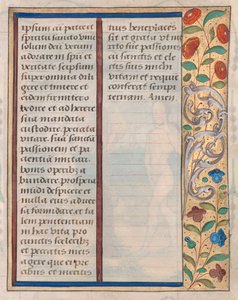 ipsum ai patcet
spiritu sancto vnu
solum deu veram
adorare in spi et
veritate seipsum
super omnia dili
gere et timere et
eidem firmiter o
bedire et adherere
sua mandata
custodire peccata
vitare sua sancta
passionem et pa
cientia mentari
bonis operib a
bundare prosperia
mudi despicere et
nulla eius aduer
ta formidare et ta
lem penitentiam
in hac vita pro
cunctis sceleribz
et peccatis meis
agere que pre
cibus et meritis
tuis beneplaces
sit et grata vt me
rito sue passionis
cu sanctis et ele
ctis suis michi
vitam et requie
conferat sempi
ternam Amen